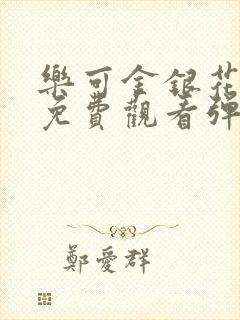 樂可金銀花
免費觀看彈
鄭愛群